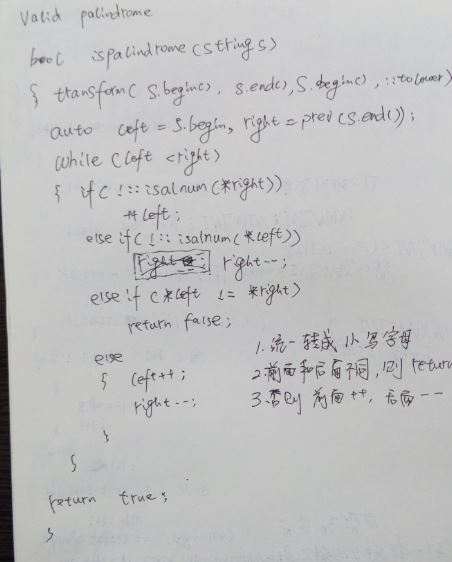 Valid palindrome
bool ispalindrome(string s)
{ transform( s.begin(), s.end(), s.begin(), ::tolower)
auto left = s.begin, right = prev(s.end());
while (left < right)
{ if( !::isalnum(*right))
++left;
else if( !:: isalnum(*left))
right--;
else if ( *left != *right)
return false;
else
1. 统一转成小写字母
{ left++;
2. 前面和后面不同,则 return
right--;
3. 否则 前面++, 后面--
}
}
return true;
}